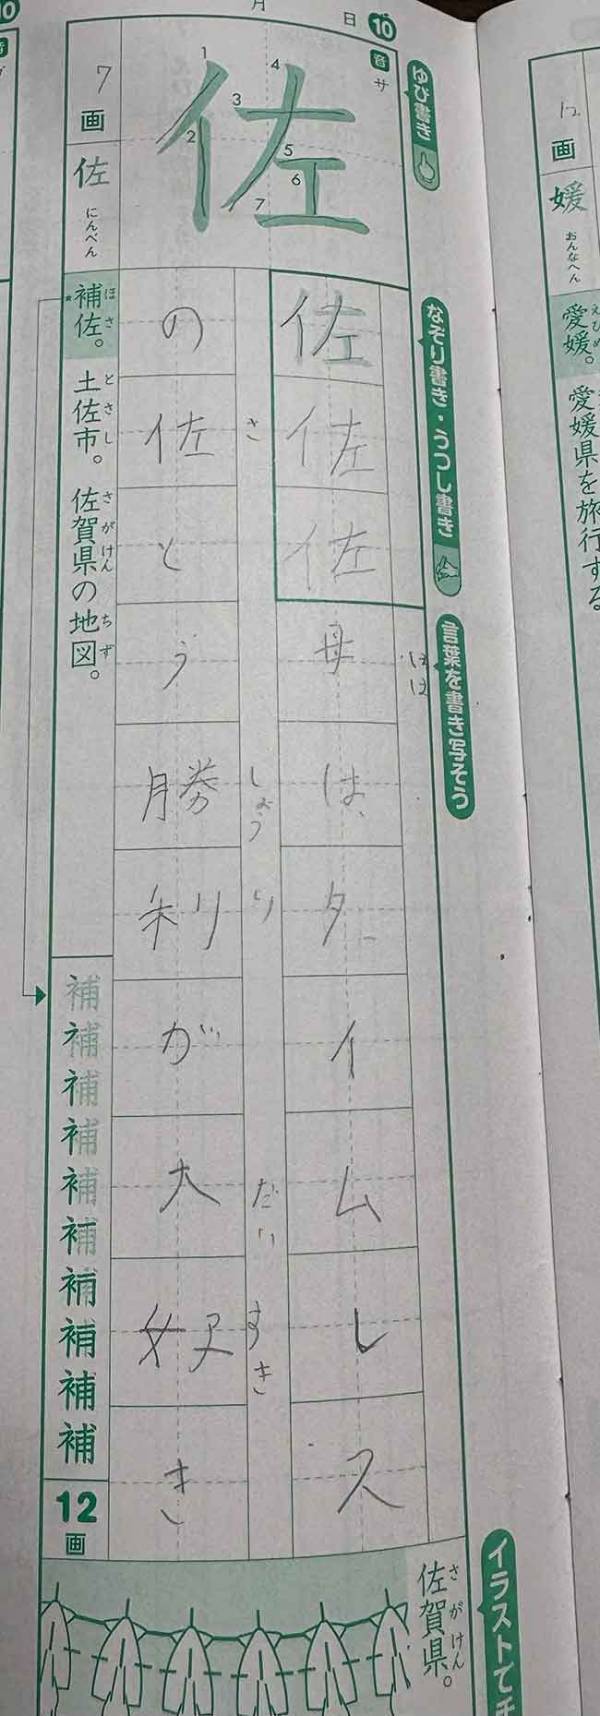 月 日 10
音 サ
ゆび書き
佐
1 2 3 4 5 6 7
7画
佐 にんべん
なぞり書き・うつし書き
佐佐佐
言葉を書き写そう
母は、タイムレス
はは
の佐とう勝利が大好き
さ しょうり だい すき
補佐。土佐市。佐賀県の地図。
ほさ とさし さがけん ちず
補補補補補補補補補補
12画
イラストで
佐賀県。
さがけん
画
媛 おんなへん
愛媛。愛媛県を旅行する
えひめ
10